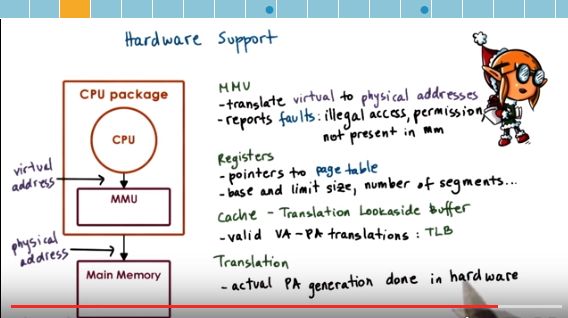 Hardware Support
CPU package
CPU
virtual
address
MMU
physical
address
Main Memory
MMU
-translate virtual to physical addresses
-reports faults: illegal access, permission
not present in mm
Registers
-pointers to page table
-base and limit size, number of segments...
Cache - Translation Lookaside Buffer
-valid VA-PA translations: TLB
Translation
- actual PA generation done in hardware